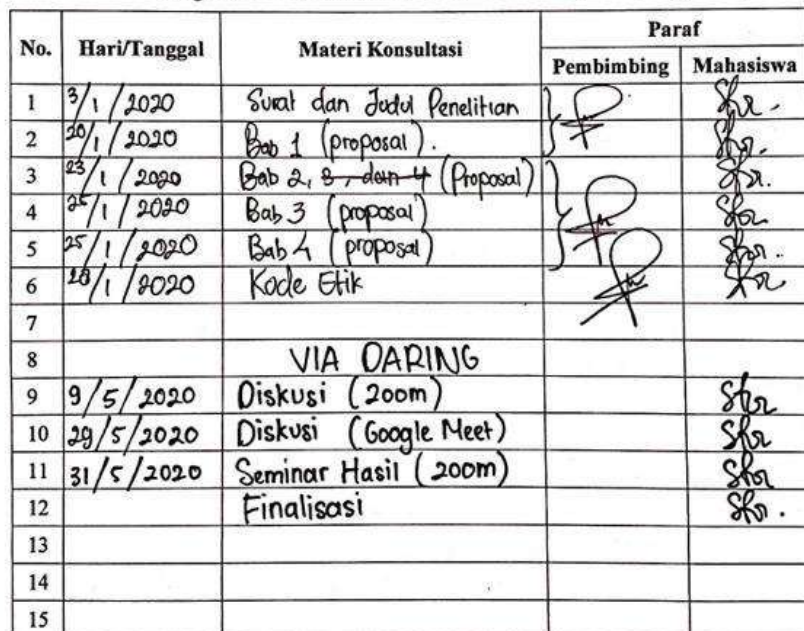 No. Hari/Tanggal Materi Konsultasi Paraf
Pembimbing Mahasiswa
1 3/1/2020 Surat dan Judul Penelitian
2 20/1/2020 Bab 1 (proposal).
3 23/1/2020 Bab 2, 3, dan 4 (Proposal)
4 25/1/2020 Bab 3 (proposal)
5 25/1/2020 Bab 4 (proposal)
6 28/1/2020 Kode Etik
7
8 VIA DARING
9 9/5/2020 Diskusi (Zoom)
10 29/5/2020 Diskusi (Google Meet)
11 31/5/2020 Seminar Hasil (Zoom)
12 Finalisasi
13
14
15